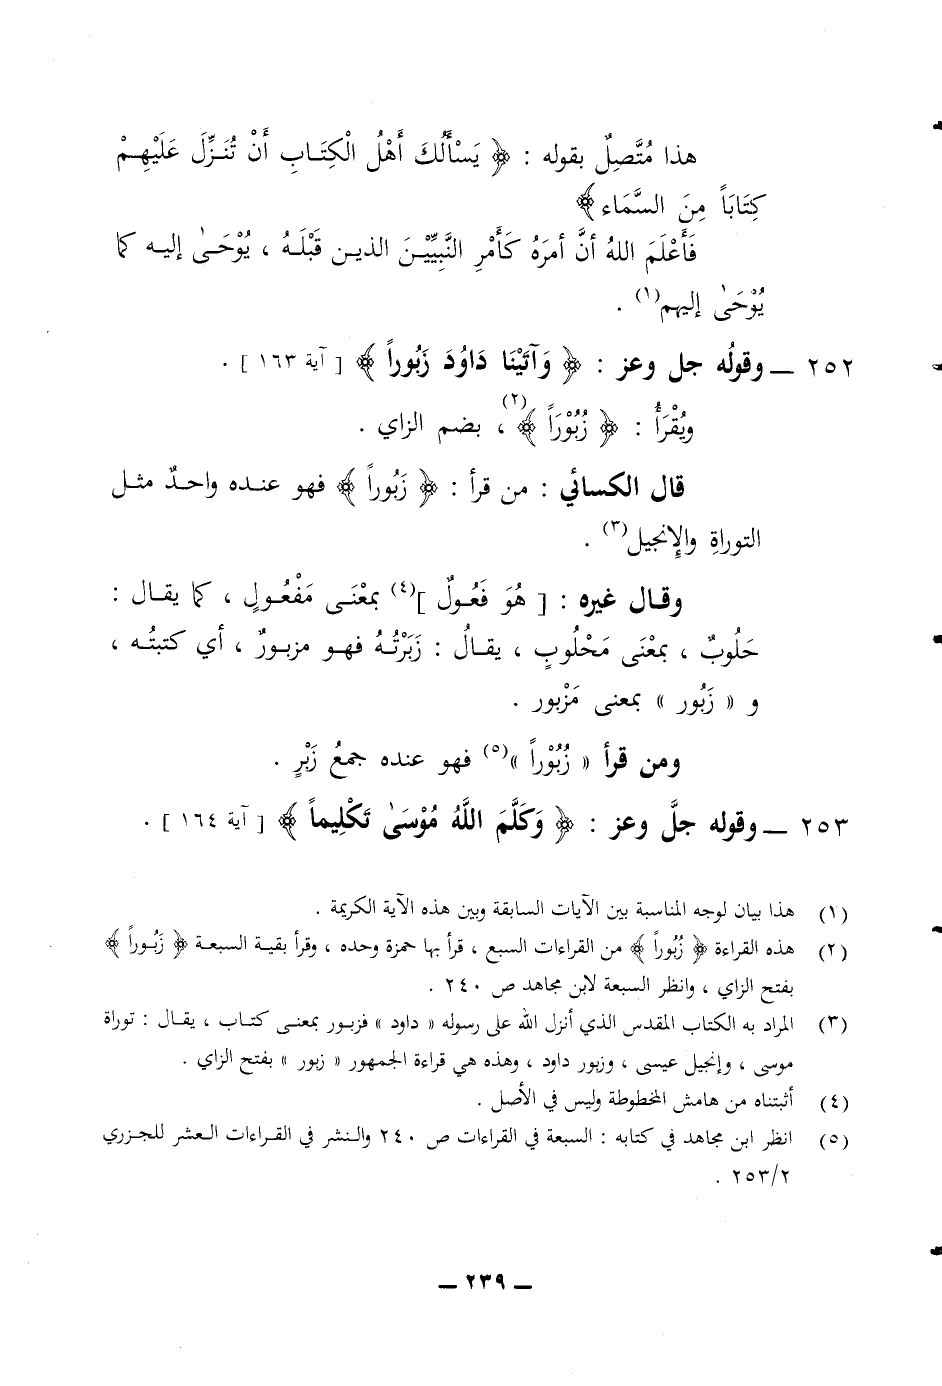 هذا مُتَّصِلٌ بقوله : ﴿ يَسْأَلُكَ أَهْلُ الْكِتَـابِ أَنْ تُنَـزِّلَ عَلَيْهِـمْ
كِتَابَاً مِنَ السَّمَاء ﴾
فَأَعْلَمَ اللهُ أنَّ أمرَهُ كَأَمْرِ النَّبِيِّيْـنَ الذيـن قَبْلَـهُ ، يُوْحَـىٰ إليـه كما
يُوْحَىٰ إليهم(١) .
٢٥٢ ــ وقولُه جل وعز : ﴿ وَآتَيْنَا دَاوُدَ زَبُوراً ﴾ [ آية ١٦٣ ] .
ويُقْرَأُ : ﴿ زُبُوْرَاً ﴾(٢) ، بضم الزاي .
قال الكسائي : من قرأ : ﴿ زَبُوراً ﴾ فهو عنـده واحـدٌ مثـل
التوراةِ والإنجيل(٣) .
وقـال غيره : [ هُوَ فَعُـولٌ ](٤) بمعْنَـى مَفْعُـولٍ ، كما يقـال :
حَلُوبٌ ، بمعْنَى مَحْلُوبٍ ، يقـالُ : زَبَرْتُـهُ فهـو مزبـورٌ ، أي كتبتُـه ،
و « زَبُور » بمعنى مَزْبور .
ومن قرأ « زُبُوْراً »(٥) فهو عنده جمعُ زَبْرٍ .
٢٥٣ ــ وقوله جلَّ وعز : ﴿ وَكَلَّمَ اللَّهُ مُوْسَىٰ تَكْلِيماً ﴾ [ آية ١٦٤ ] .
(١) هذا بيان لوجه المناسبة بين الآيات السابقة وبين هذه الآية الكريمة .
(٢) هذه القراءة ﴿ زُبُوراً ﴾ من القراءات السبع ، قرأ بها حمزة وحده ، وقرأ بقيـة السبعـة ﴿ زَبُـوراً ﴾
بفتح الزاي ، وانظر السبعة لابن مجاهد ص ٢٤٠ .
(٣) المراد به الكتاب المقدس الذي أنزل الله على رسوله « داود » فزبـور بمعنـى كتـاب ، يقـال : توراة
موسى ، وإنجيل عيسى ، وزبور داود ، وهذه هي قراءة الجمهور « زبور » بفتح الزاي .
(٤) أثبتناه من هامش المخطوطة وليس في الأصل .
(٥) انظر ابن مجاهد في كتابه : السبعة في القراءات ص ٢٤٠ والنشر في القـراءات العشر للجـزري
٢٥٣/٢ .
ــ ٢٣٩ ــ